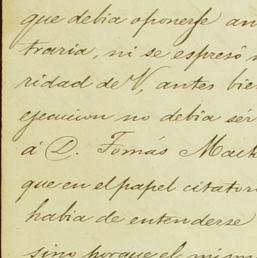 que debia oponerse an
traria, ni se espresó
ridad de V, antes bie
ejecucion no debia sér
á D. Tomás Mack
que en el papel citator
habia de entenderse
sino porque el mism